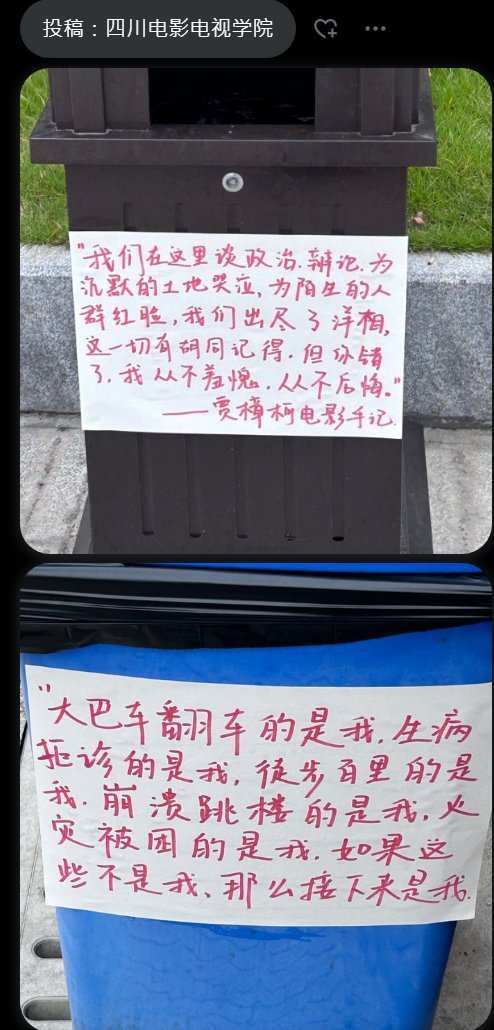 投稿：四川电影电视学院
"我们在这里谈政治.辩论.为
沉默的土地哭泣,为陌生的人
群红脸,我们出尽了洋相,
这一切有胡同记得.但你错
了,我从不羞愧,从不后悔。"
——贾樟柯电影手记.
"大巴车翻车的是我.生病
拒诊的是我,徒步百里的是
我.崩溃跳楼的是我.火
灾被困的是我.如果这
些不是我、那么接下来是我.